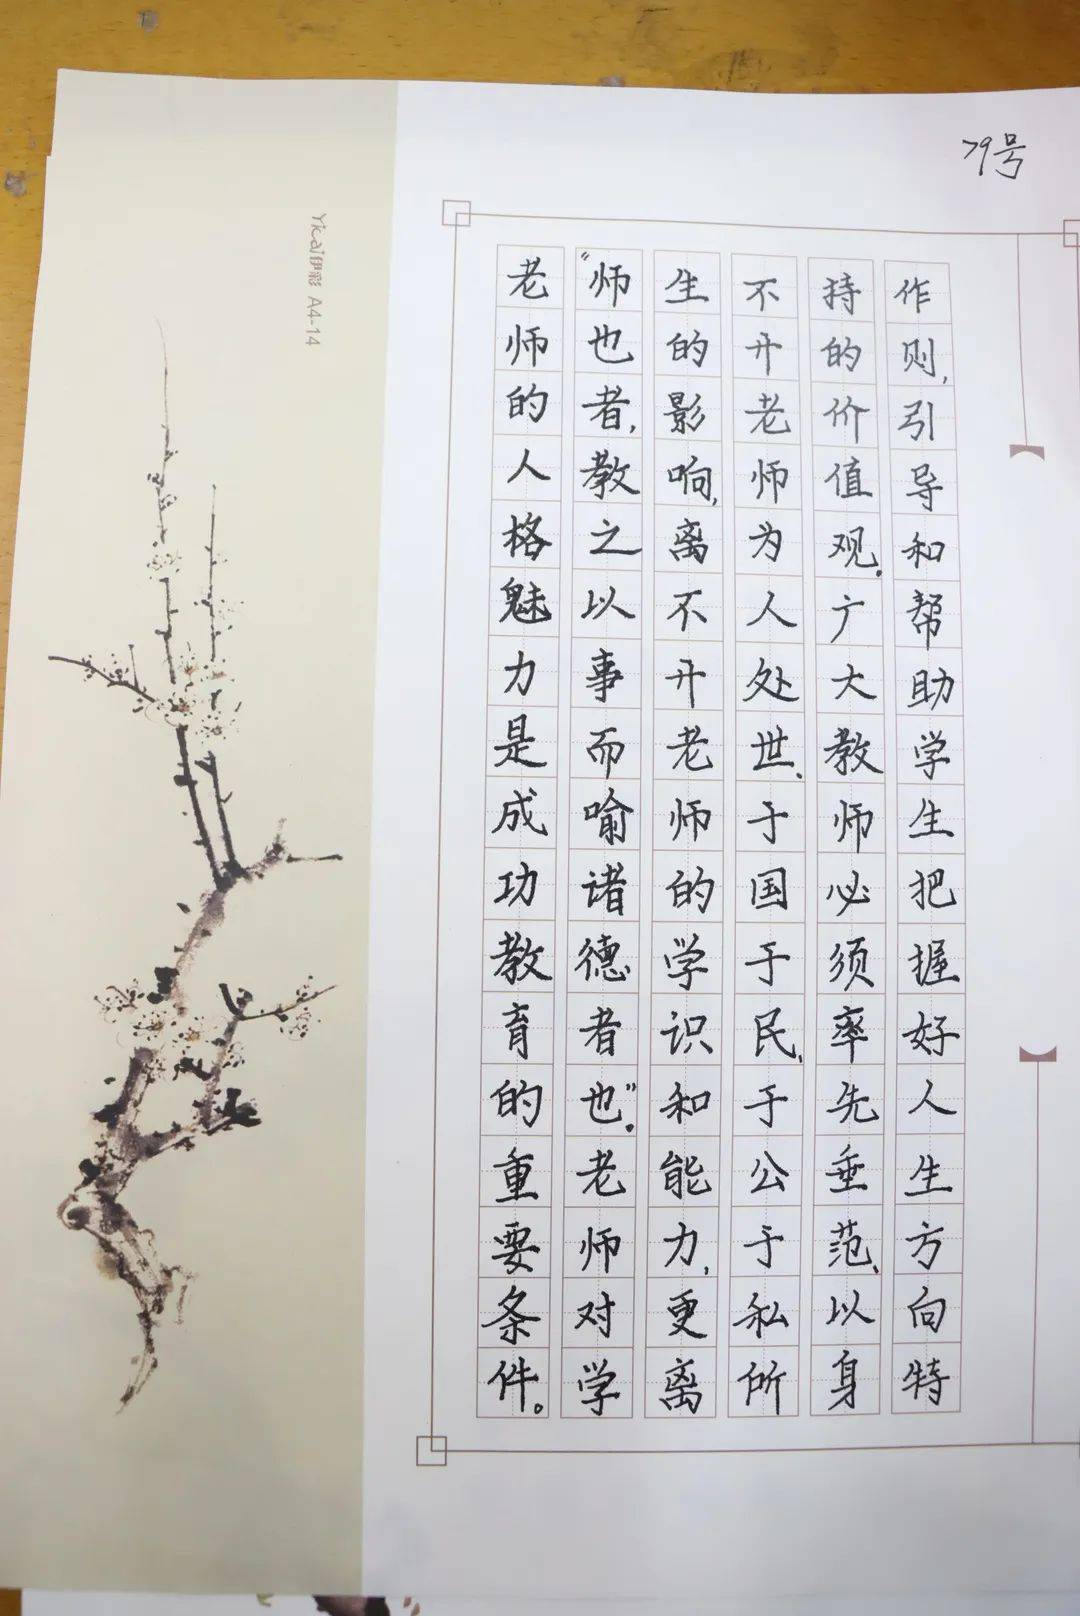 79号
Yicai伊彩 A4-14
老师的人格魅力是成功教育的重要条件。
“师也者,教之以事而喻诸德者也”。老师对学
生的影响,离不开老师的学识和能力,更离
不开老师为人处世、于国于民、于公于私所
持的价值观。广大教师必须率先垂范、以身
作则,引导和帮助学生把握好人生方向特